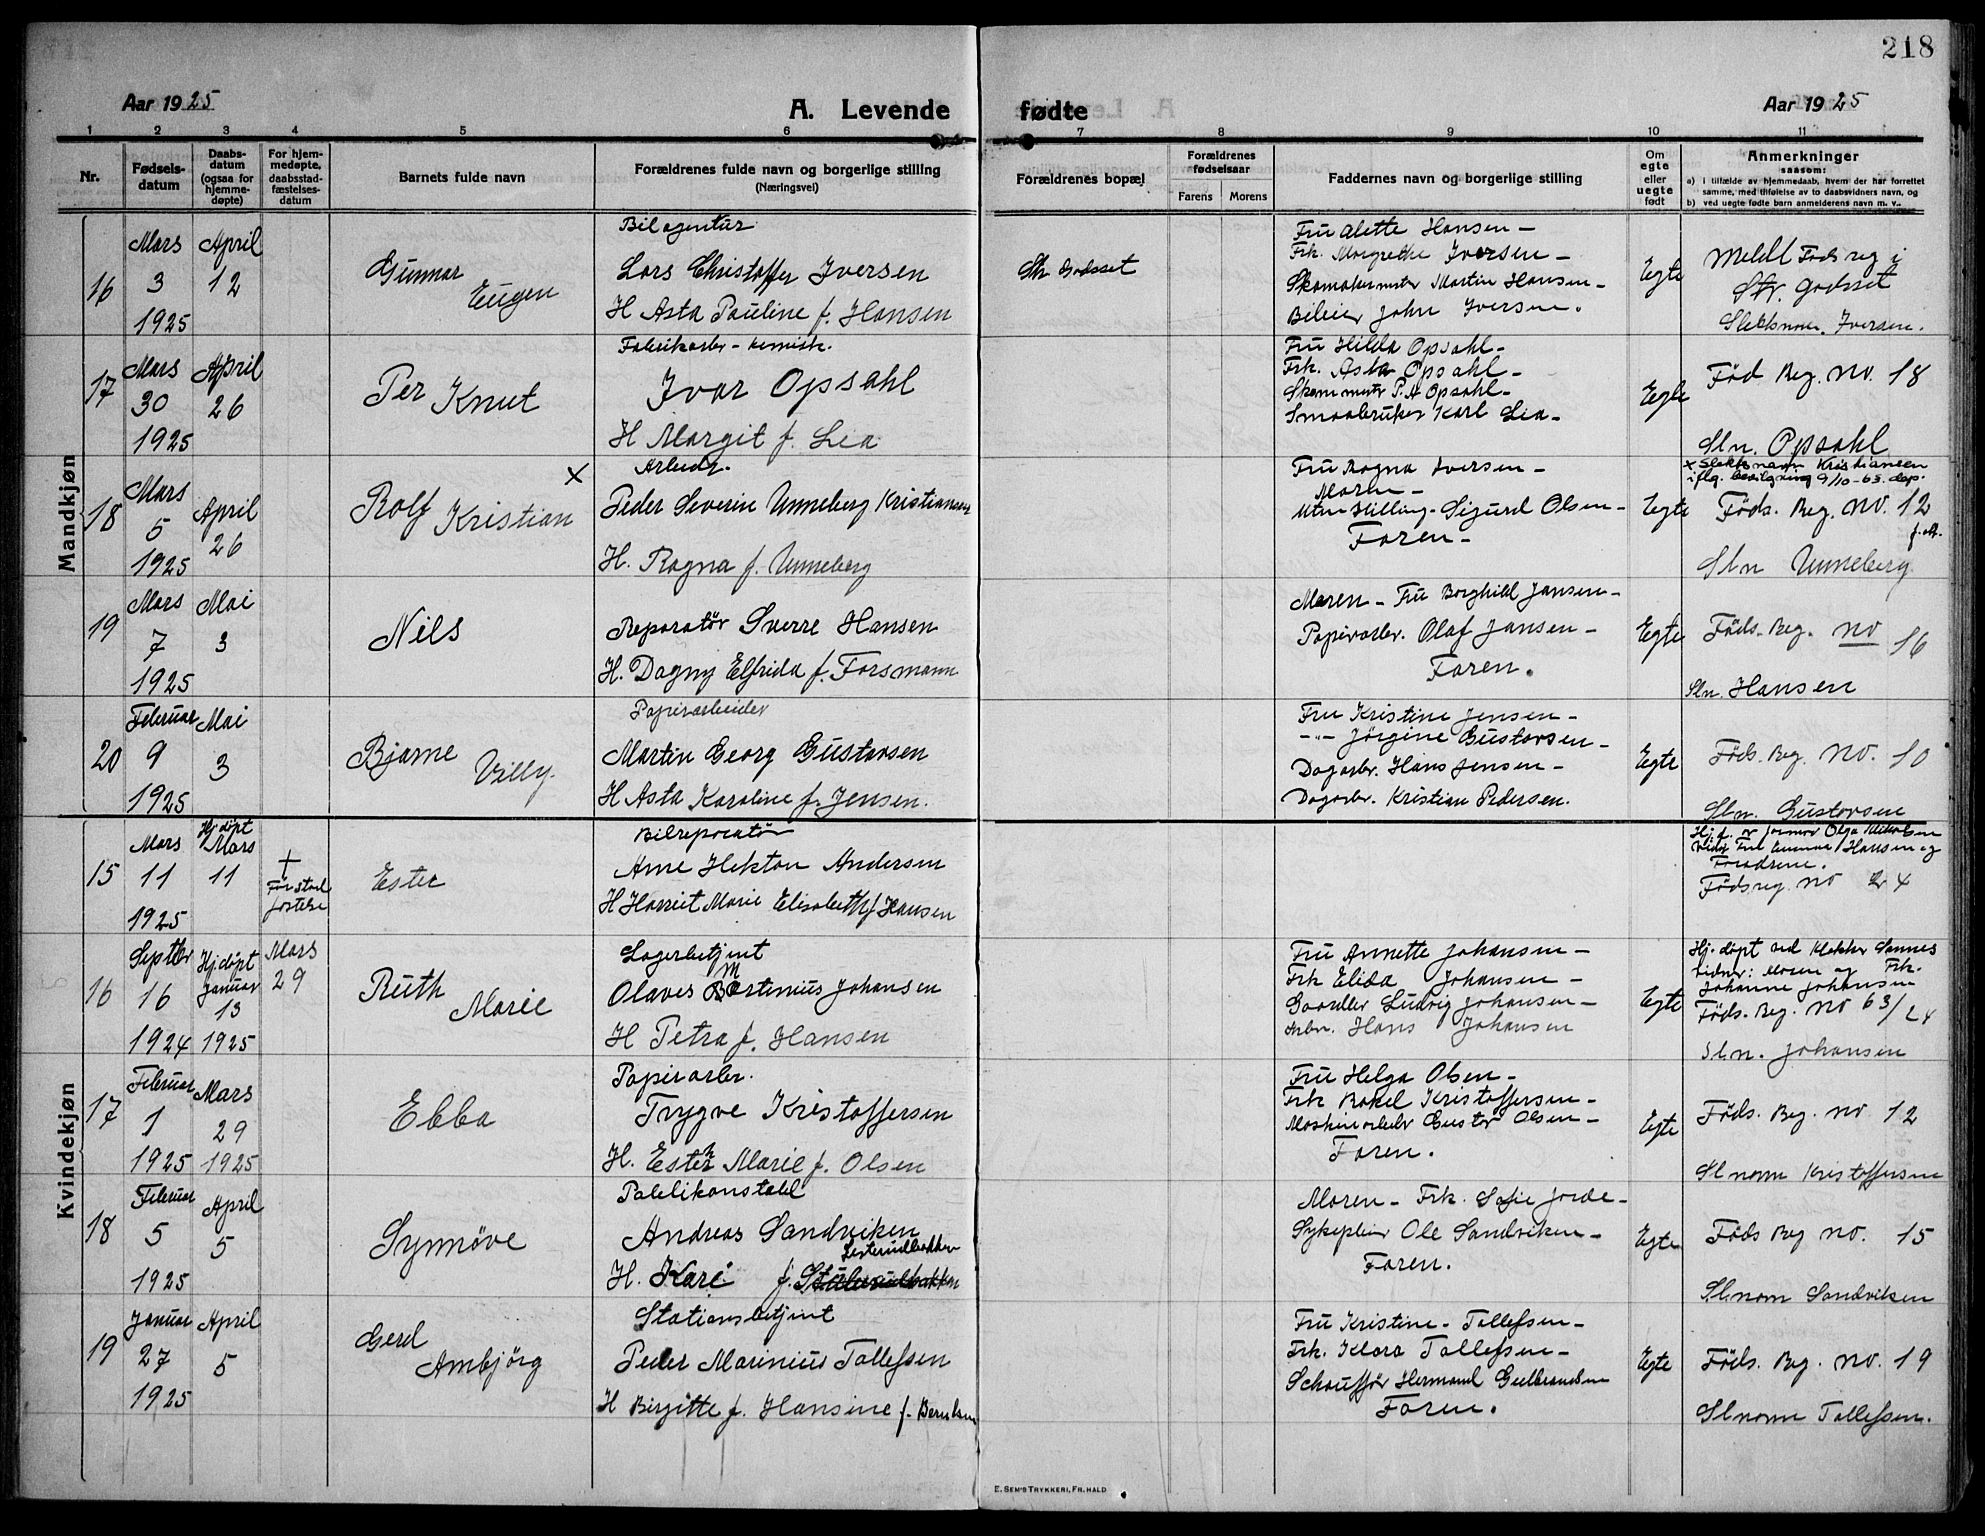 218
Aar 1925
A. Levende fødte
Aar 1925
1 2 3 4 5 6 7 8 9 10 11
Nr.
Fødsels-
datum
Daabs-
datum
(ogsaa for
hjemme-
døpte)
For hjem-
medøpte,
daabsstad-
fæstelses-
datum
Barnets fulde navn
Forældrenes fulde navn og borgerlige stilling
(Næringsvei)
Forældrenes bopæl
Forældrenes
fødselsaar
Farens Morens
Faddernes navn og borgerlige stilling
Om
egte
eller
uegte
født
Anmerkninger
saasom:
a) i tilfælde av hjemmedaab, hvem der har forrettet
samme, med tilføielse av to daabsvidners navn, og
b) ved uegte fødte barn anmelderens navn m. v..
Mandkjøn
16
Mars
3
1925
April
12
Gunnar
Eugen
Bilagentur
Lars Christoffer Iversen
H Asta Pauline f. Hansen
Str. Godsset
Fru Alette Hansen -
Frk. Margrethe Iversen -
Skomakermstr Martin Hansen -
Bileier John Iversen.
Egte
Meldt Føds reg i
Str. Godsset
Slektsnavn. Iversen.
17
Mars
30
1925
April
26
Per Knut
Fabrikarbr - kemisk.
Ivar Opsahl
H Margit f. Lia
Fru Hilda Opsahl -
Frk. Asta Opsahl -
P. A Opsahl -
Smaabruker Karl Lia -
Egte
Fød Reg. No. 18
Sln. Opsahl
18
Mars
5
1925
April
26
Rolf Kristian ×
Arbeidr.
Peder Severin Unneberg Kristiansen
H. Ragna f. Unneberg
Fru Ragna Iversen -
Moren -
Uten stilling. Sigurd Olsen -
Faren -
Egte
× Slektsnavn Kristiansen
iflg. bevilgning 9/10-63. dep.
Føds. Reg. No. 12
Sln Unneberg
19
Mars
7
1925
Mai
3
Nils
Reparatør Sverre Hansen
H. Dagny Elfrida f. Forsmann
Moren - Fru Borghild Jansen -
Papirarbr. Olaf Jansen -
Faren.
Egte
Føds. Reg. no 16
Sln. Hansen
20
Februar
9
1925
Mai
3
Bjarne Villy.
Papirarbeider
Martin Georg Gustavsen
H Asta Karoline f. Jensen.
Fru Kristine Jensen -
-"- Jørgine Gustavsen -
Dagarbr. Hans Jensen -
Dagarbr. Kristian Pedersen.
Egte
Føds. Reg. No. 10
Sln. Gustavsen
Kvindekjøn
15
Mars
11
1925
Hj. døpt
Mars
11
†
Før stad
festelse
Ester
Bilreparatør
Arne Hekton Andersen
H Harriet Marie Elisabeth f Hansen
Hj.d. av farmor Olga
Fru Hansen og
Føds reg. no 24
16
Septbr
16
1924
Hj. døpt
Januar
13
1925
Mars
29
Ruth
Marie
Lagerbetjent
Olaves Martinius Johansen
H Petra f. Hansen
Fru Annette Johansen -
Frk Elida Johansen -
Gaardbr Ludvig Johansen -
Arbr. Hans Johansen
Egte
Hj. døpt ved Klokker Sannes
vidner: Moren og Frk.
Johanne Johansen
Føds. Reg. No 63/24
Sln. Johansen
17
Februar
1
1925
Mars
29
1925
Ebba
Papirarbr.
Trygve Kristoffersen
H. Ester Marie f. Olsen
Fru Helga Olsen -
Frk Rakel Kristoffersen -
Maskinarbdr Gustav Olsen -
Faren.
Egte
Føds. Reg. No 12
Sl navn Kristoffersen
18
Februar
5
1925
April
5
Synnøve
Politikonstabel
Andreas Sandviken
H. Kari f.
Moren - Frk. Sofie Jorde -
Sykepleier Ole Sandviken -
Faren.
Egte
Føds Reg No. 15
Sl.navn Sandviken
19
Januar
27
1925
April
5
Gerd
Arnbjörg
Stationsbetjent
Peder Marinius Tollefsen
H Birgitte f. Hansine f. Berntsen
Fru Kristine - Tollefsen -
Frk. Klara Tollefsen -
Schauffør Hermand Gulbrandsen
Faren.
Egte
Føds. Reg. No. 19
Sl navn Tollefsen.
E. SEM'S TRYKKERI, FR.HALD